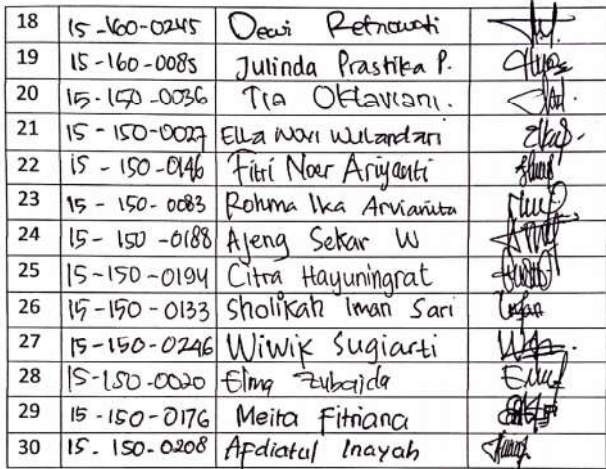 18 15-160-0245 Dewi Retnowati
19 15-160-0085 Julinda Prastika P.
20 15-150-0036 Tia Oktaviani.
21 15-150-0027 Ella Novi Wulandari
22 15-150-0146 Fitri Noer Ariyanti
23 15-150-0083 Rohma Ika Arvianita
24 15-150-0188 Ajeng Sekar W
25 15-150-0194 Citra Hayuningrat
26 15-150-0133 Sholikah Iman Sari
27 15-150-0246 Wiwik Sugiarti
28 15-150-0020 Elma Zubaida
29 15-150-0176 Meita Fitriana
30 15.150-0208 Afdiatul Inayah